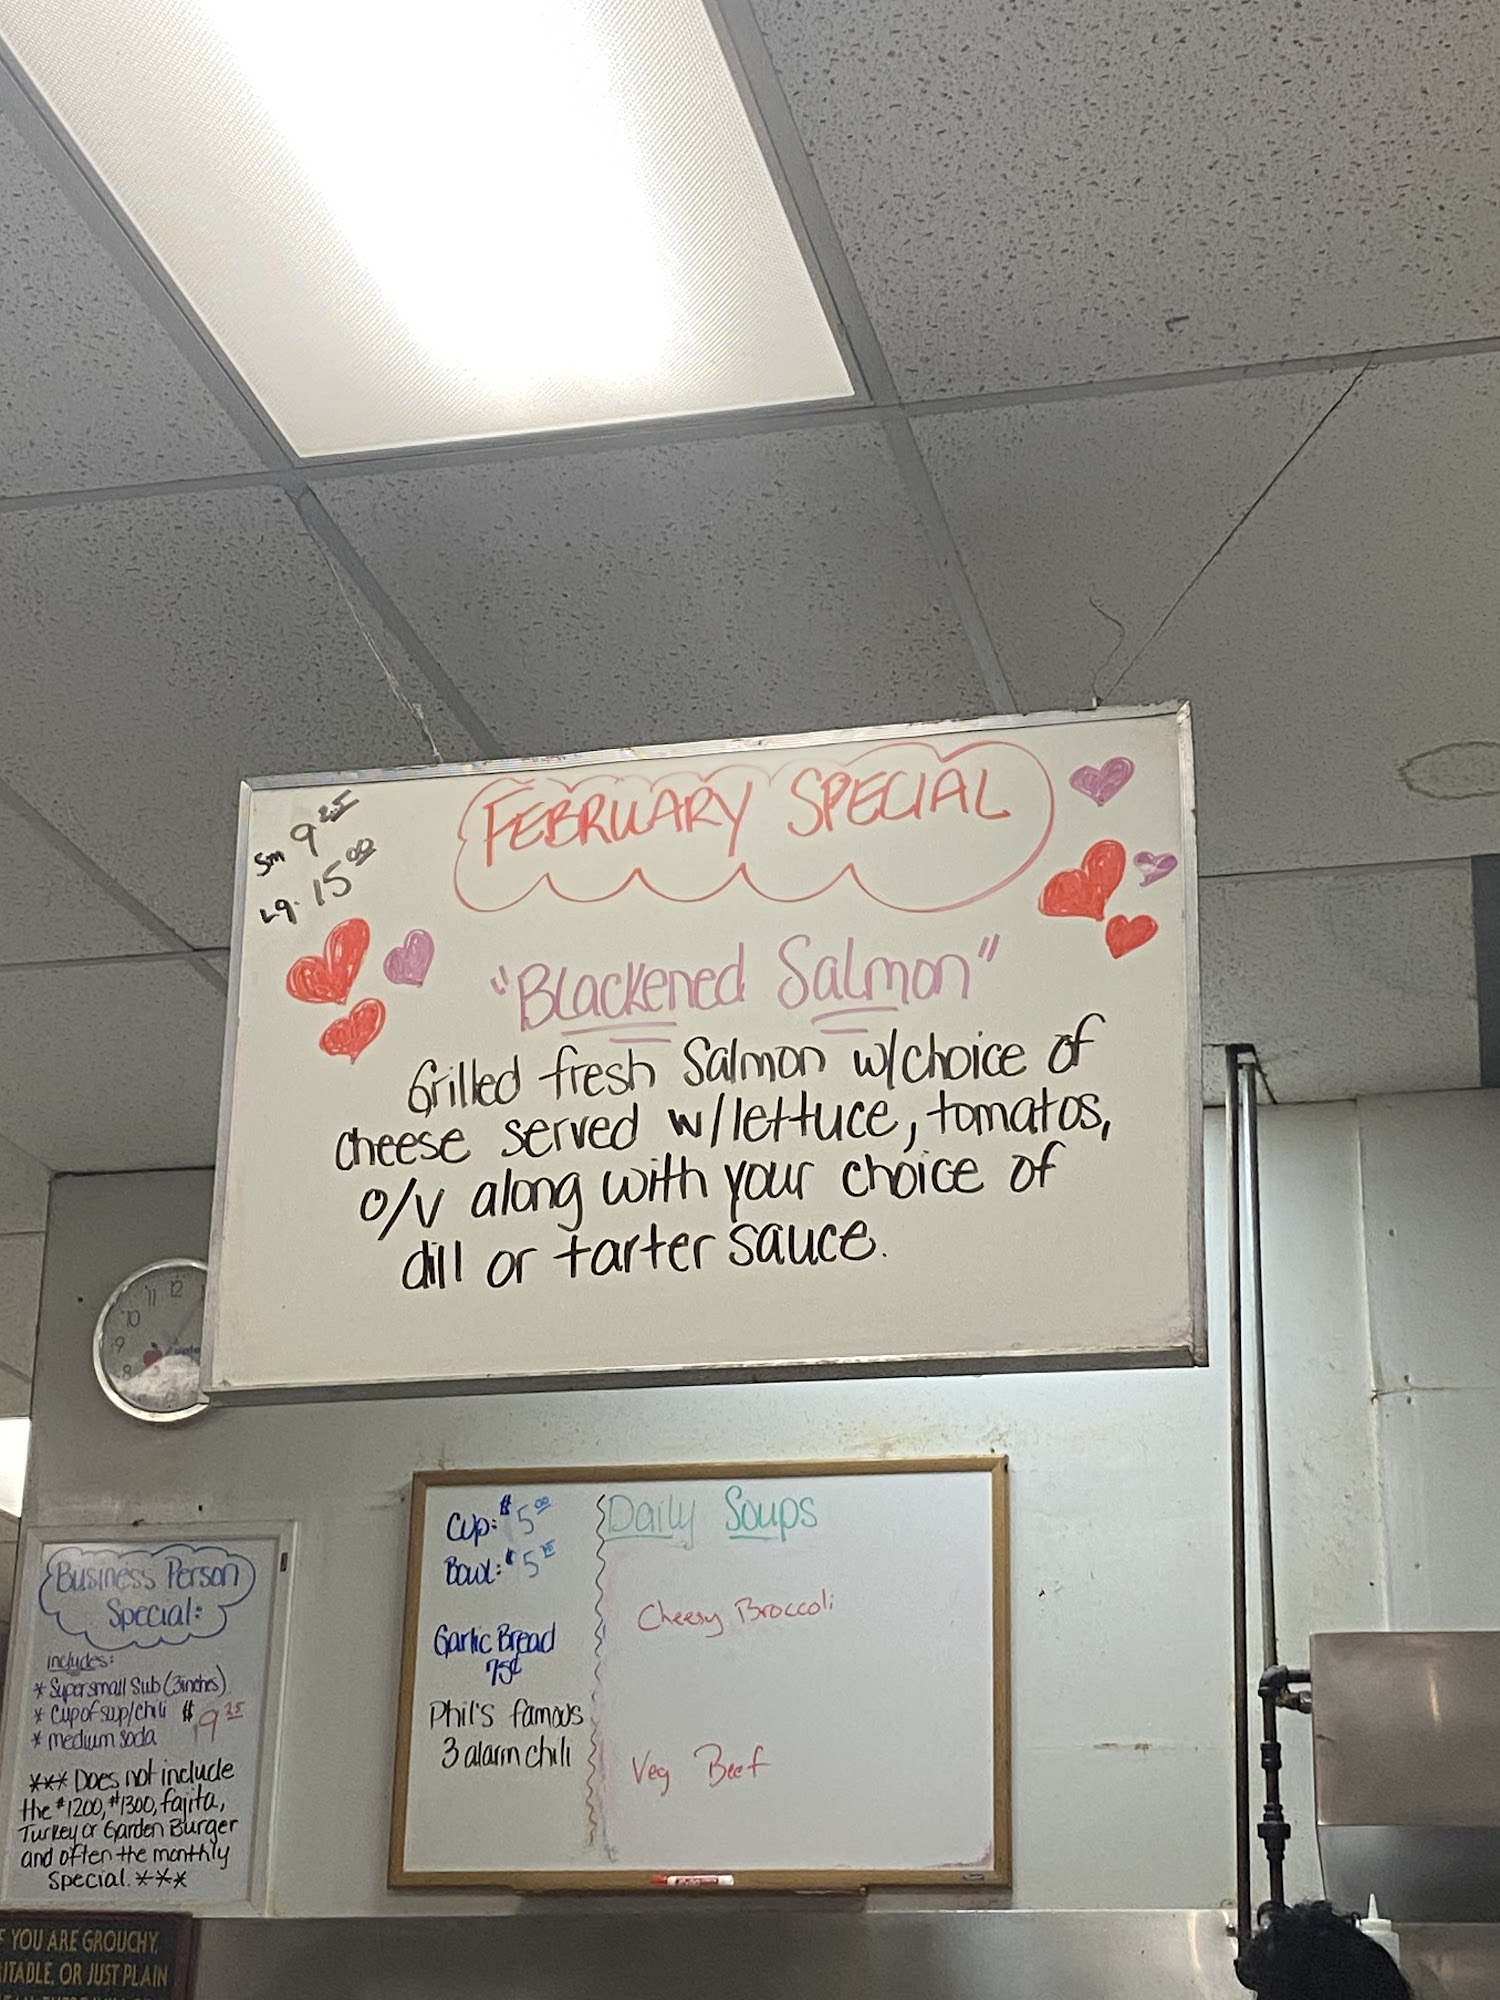 Sm 9 25
Lg. 15 00
FEBRUARY SPECIAL
"Blackened Salmon"
Grilled fresh Salmon w/choice of
cheese served w/lettuce, tomatos,
o/v along with your choice of
dill or tarter sauce.
11 12
10
9
8
Cup: $5 00
Bowl: $5 75
Garlic Bread
75¢
Phil's famous
3 alarm chili
Daily Soups
Cheesy Broccoli
Veg Beef
Business Person
Special:
includes:
* Supersmall Sub (3inches)
* Cup of soup/chili $9 25
* medium soda
*** Does not include
the #1200, #1300, fajita,
Turkey or Garden Burger
and often the monthly
Special. ***
F YOU ARE GROUCHY,
ITABLE, OR JUST PLAIN